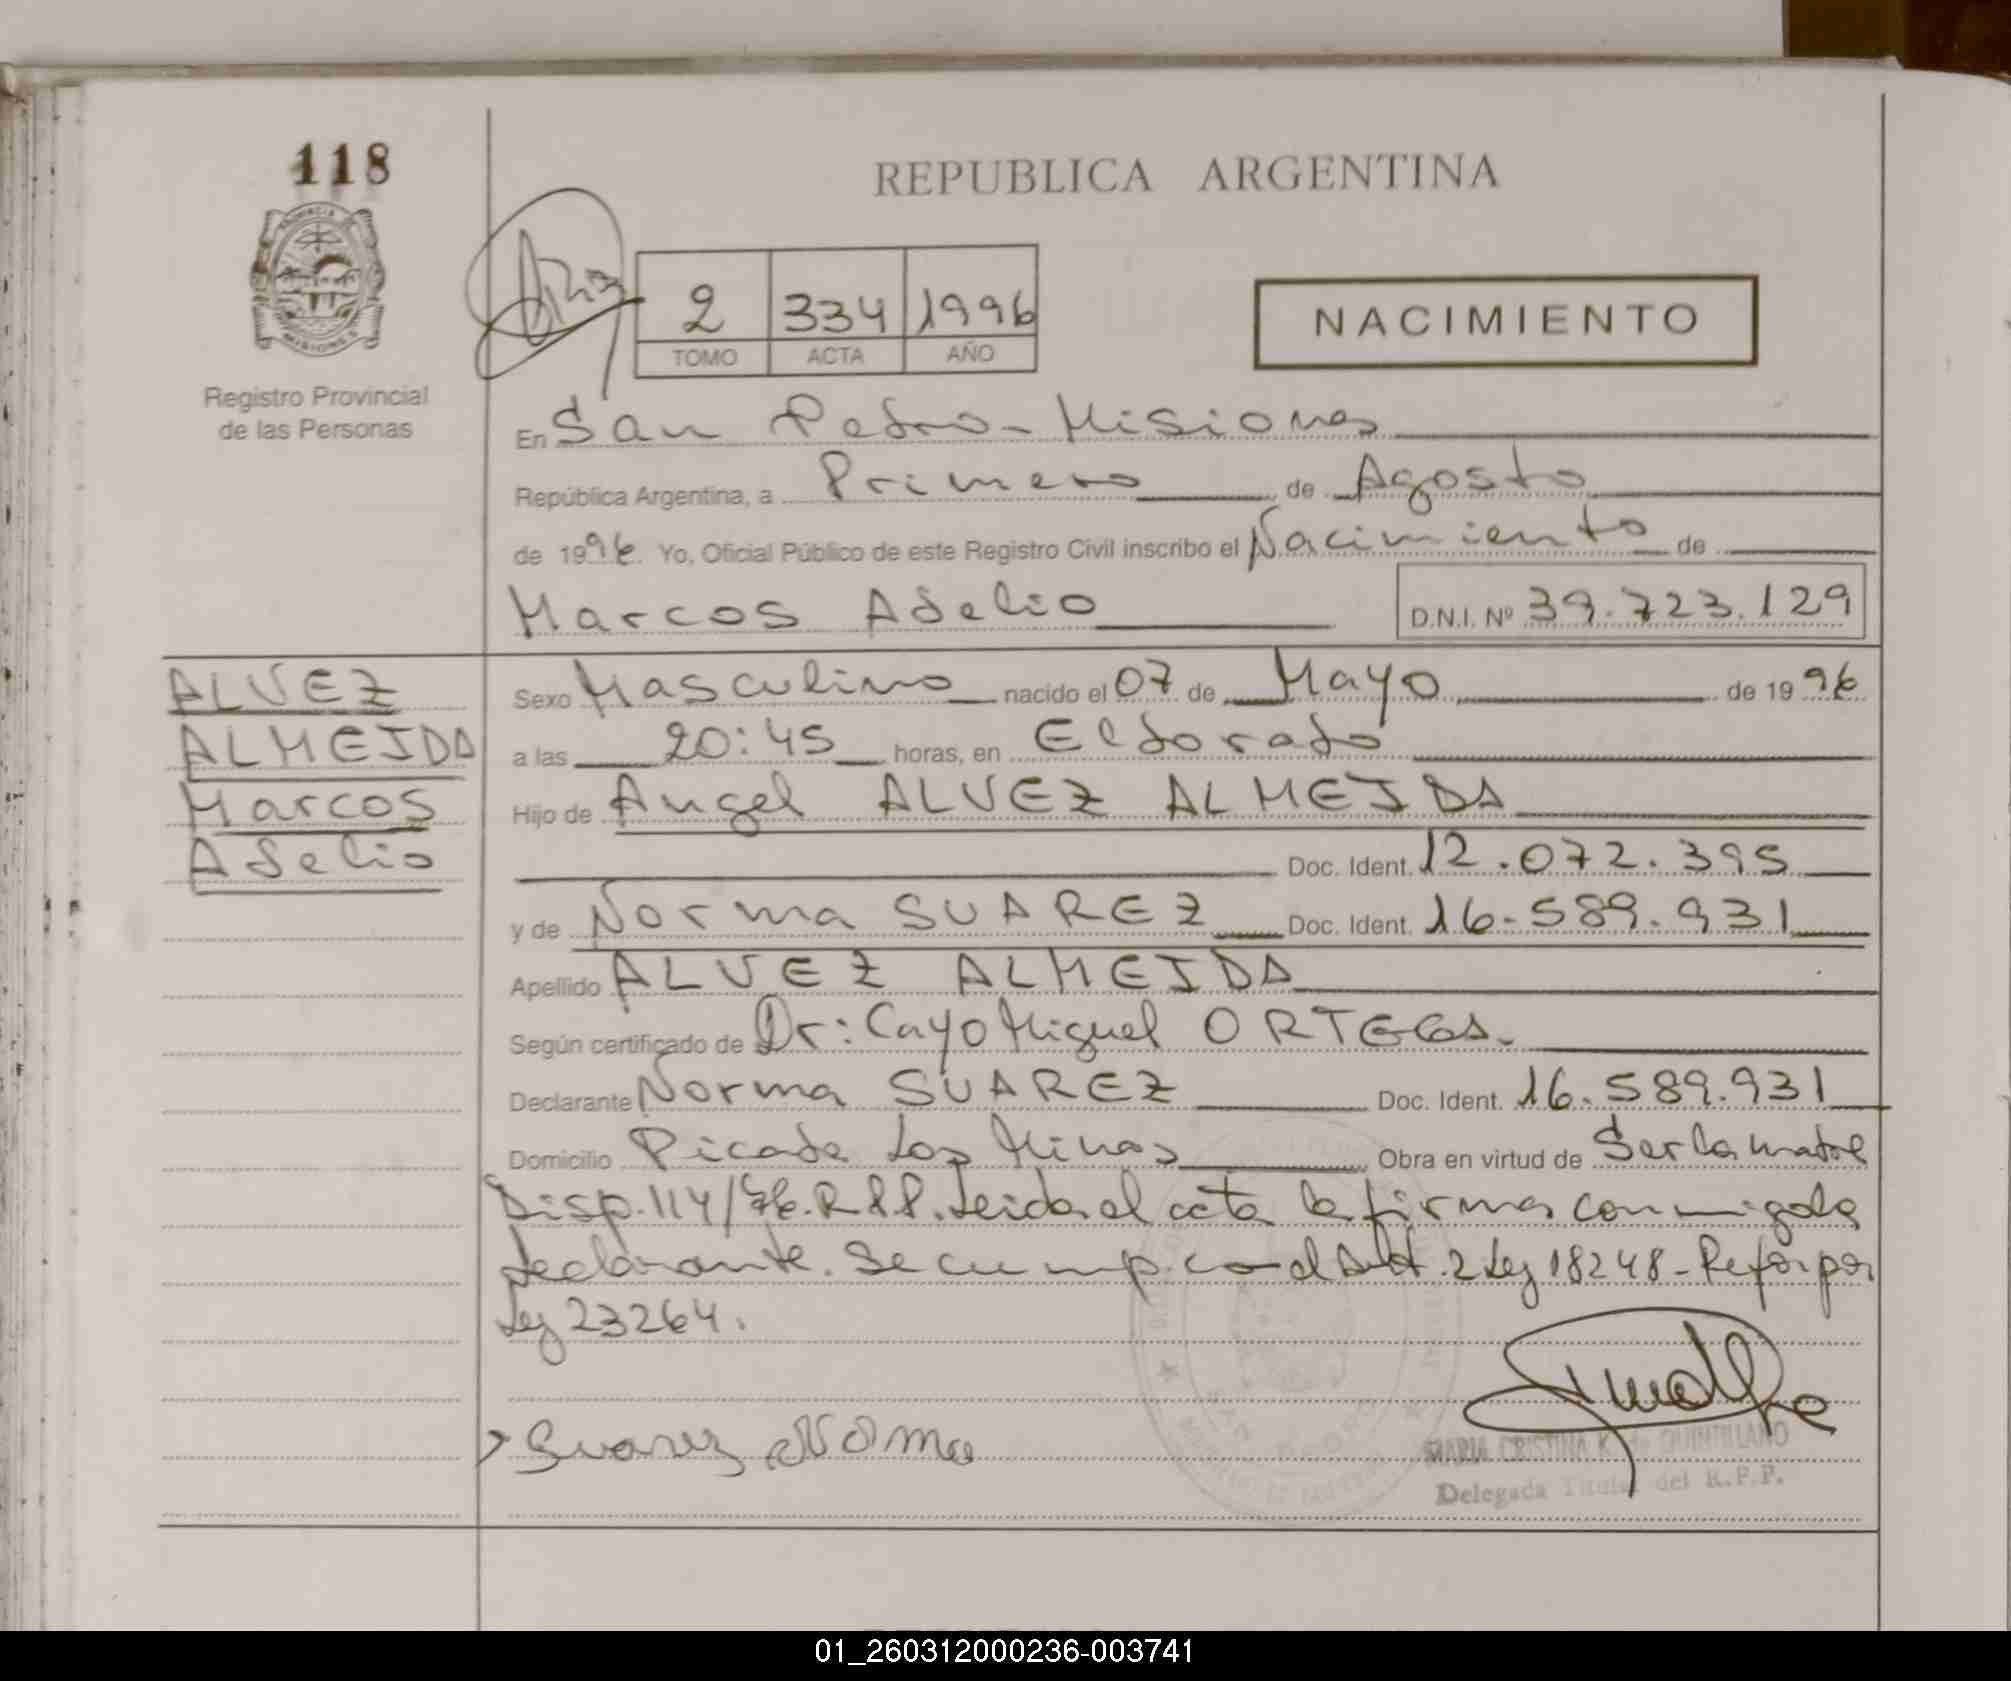 118
REPUBLICA ARGENTINA
PROVINCIA DE
MISIONES
2 334 1996
TOMO ACTA AÑO
NACIMIENTO
Registro Provincial
de las Personas
En San Pedro - Misiones
República Argentina, a Primero de Agosto
de 1996. Yo, Oficial Público de este Registro Civil inscribo el Nacimiento de
Marcos Adelio D.N.I. Nº 39.723.129
ALVEZ
ALMEIDA
Marcos
Adelio
Sexo Masculino nacido el 07 de Mayo de 1996
a las 20:45 horas, en Eldorado
Hijo de Angel ALVEZ ALMEIDA
Doc. Ident. 12.072.395
y de Norma SUAREZ Doc. Ident. 16.589.931
Apellido ALVEZ ALMEIDA
Según certificado de Dr: Cayo Miguel ORTEGA.
Declarante Norma SUAREZ Doc. Ident. 16.589.931
Domicilio Picada Los Minas Obra en virtud de Ser la madre
Disp. 114/76. R.P.P. Leida el acta la firma conmigo la
declarante. Se cump. con el Art. 2 Ley 18248 - Refor. por
Ley 23264.
Suarez Noma
MARIA CRISTINA K. de QUINTILIANO
Delegada Titular del R.P.P.
01_260312000236-003741